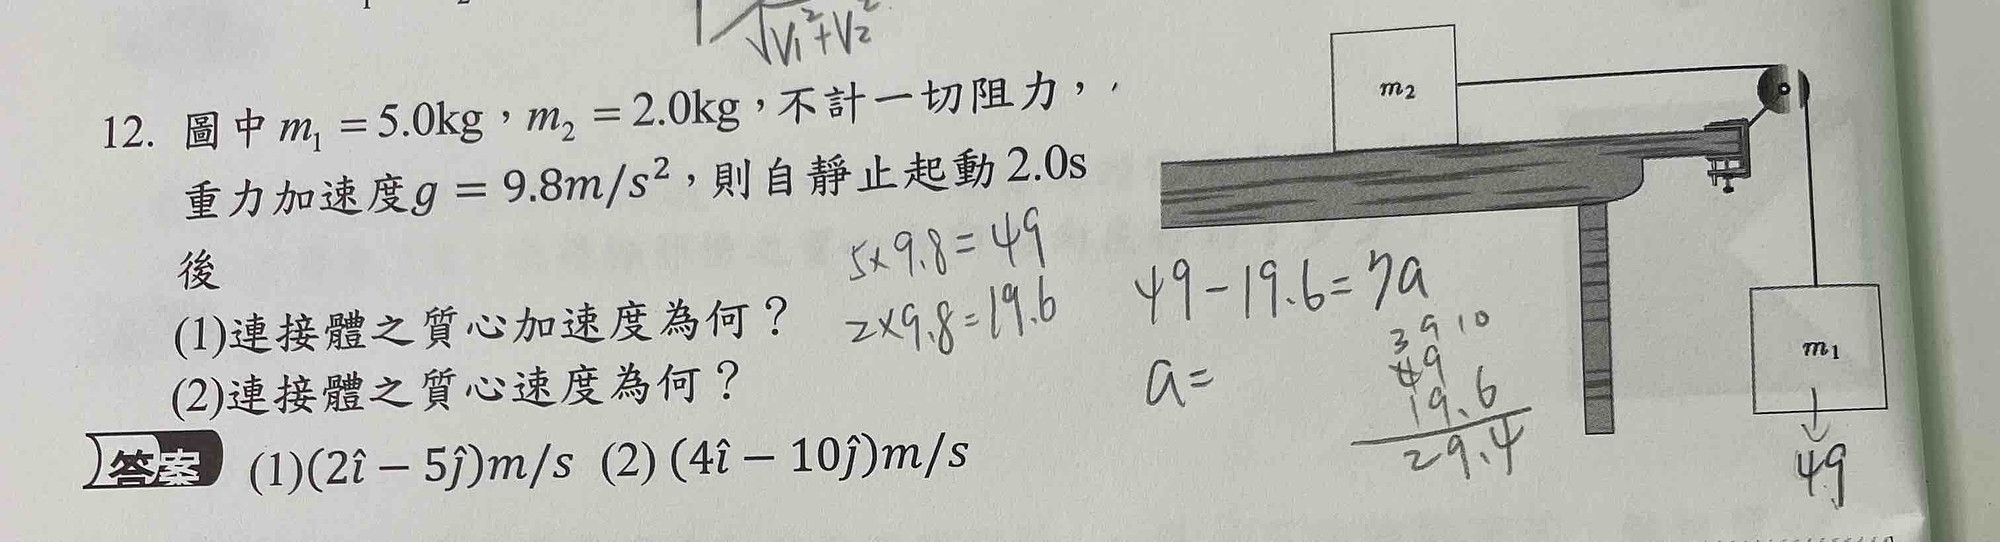 √V₁²+V₂²
12. 圖中 m₁ = 5.0kg，m₂ = 2.0kg，不計一切阻力，
重力加速度g = 9.8m/s²，則自靜止起動 2.0s
後
(1)連接體之質心加速度為何？
(2)連接體之質心速度為何？
答案 (1)(2î − 5ĵ)m/s (2) (4î − 10ĵ)m/s
5×9.8=49
2×9.8=19.6
49-19.6=7a
a=
3 9 10
49
19.6
29.4
m₂
m₁
49